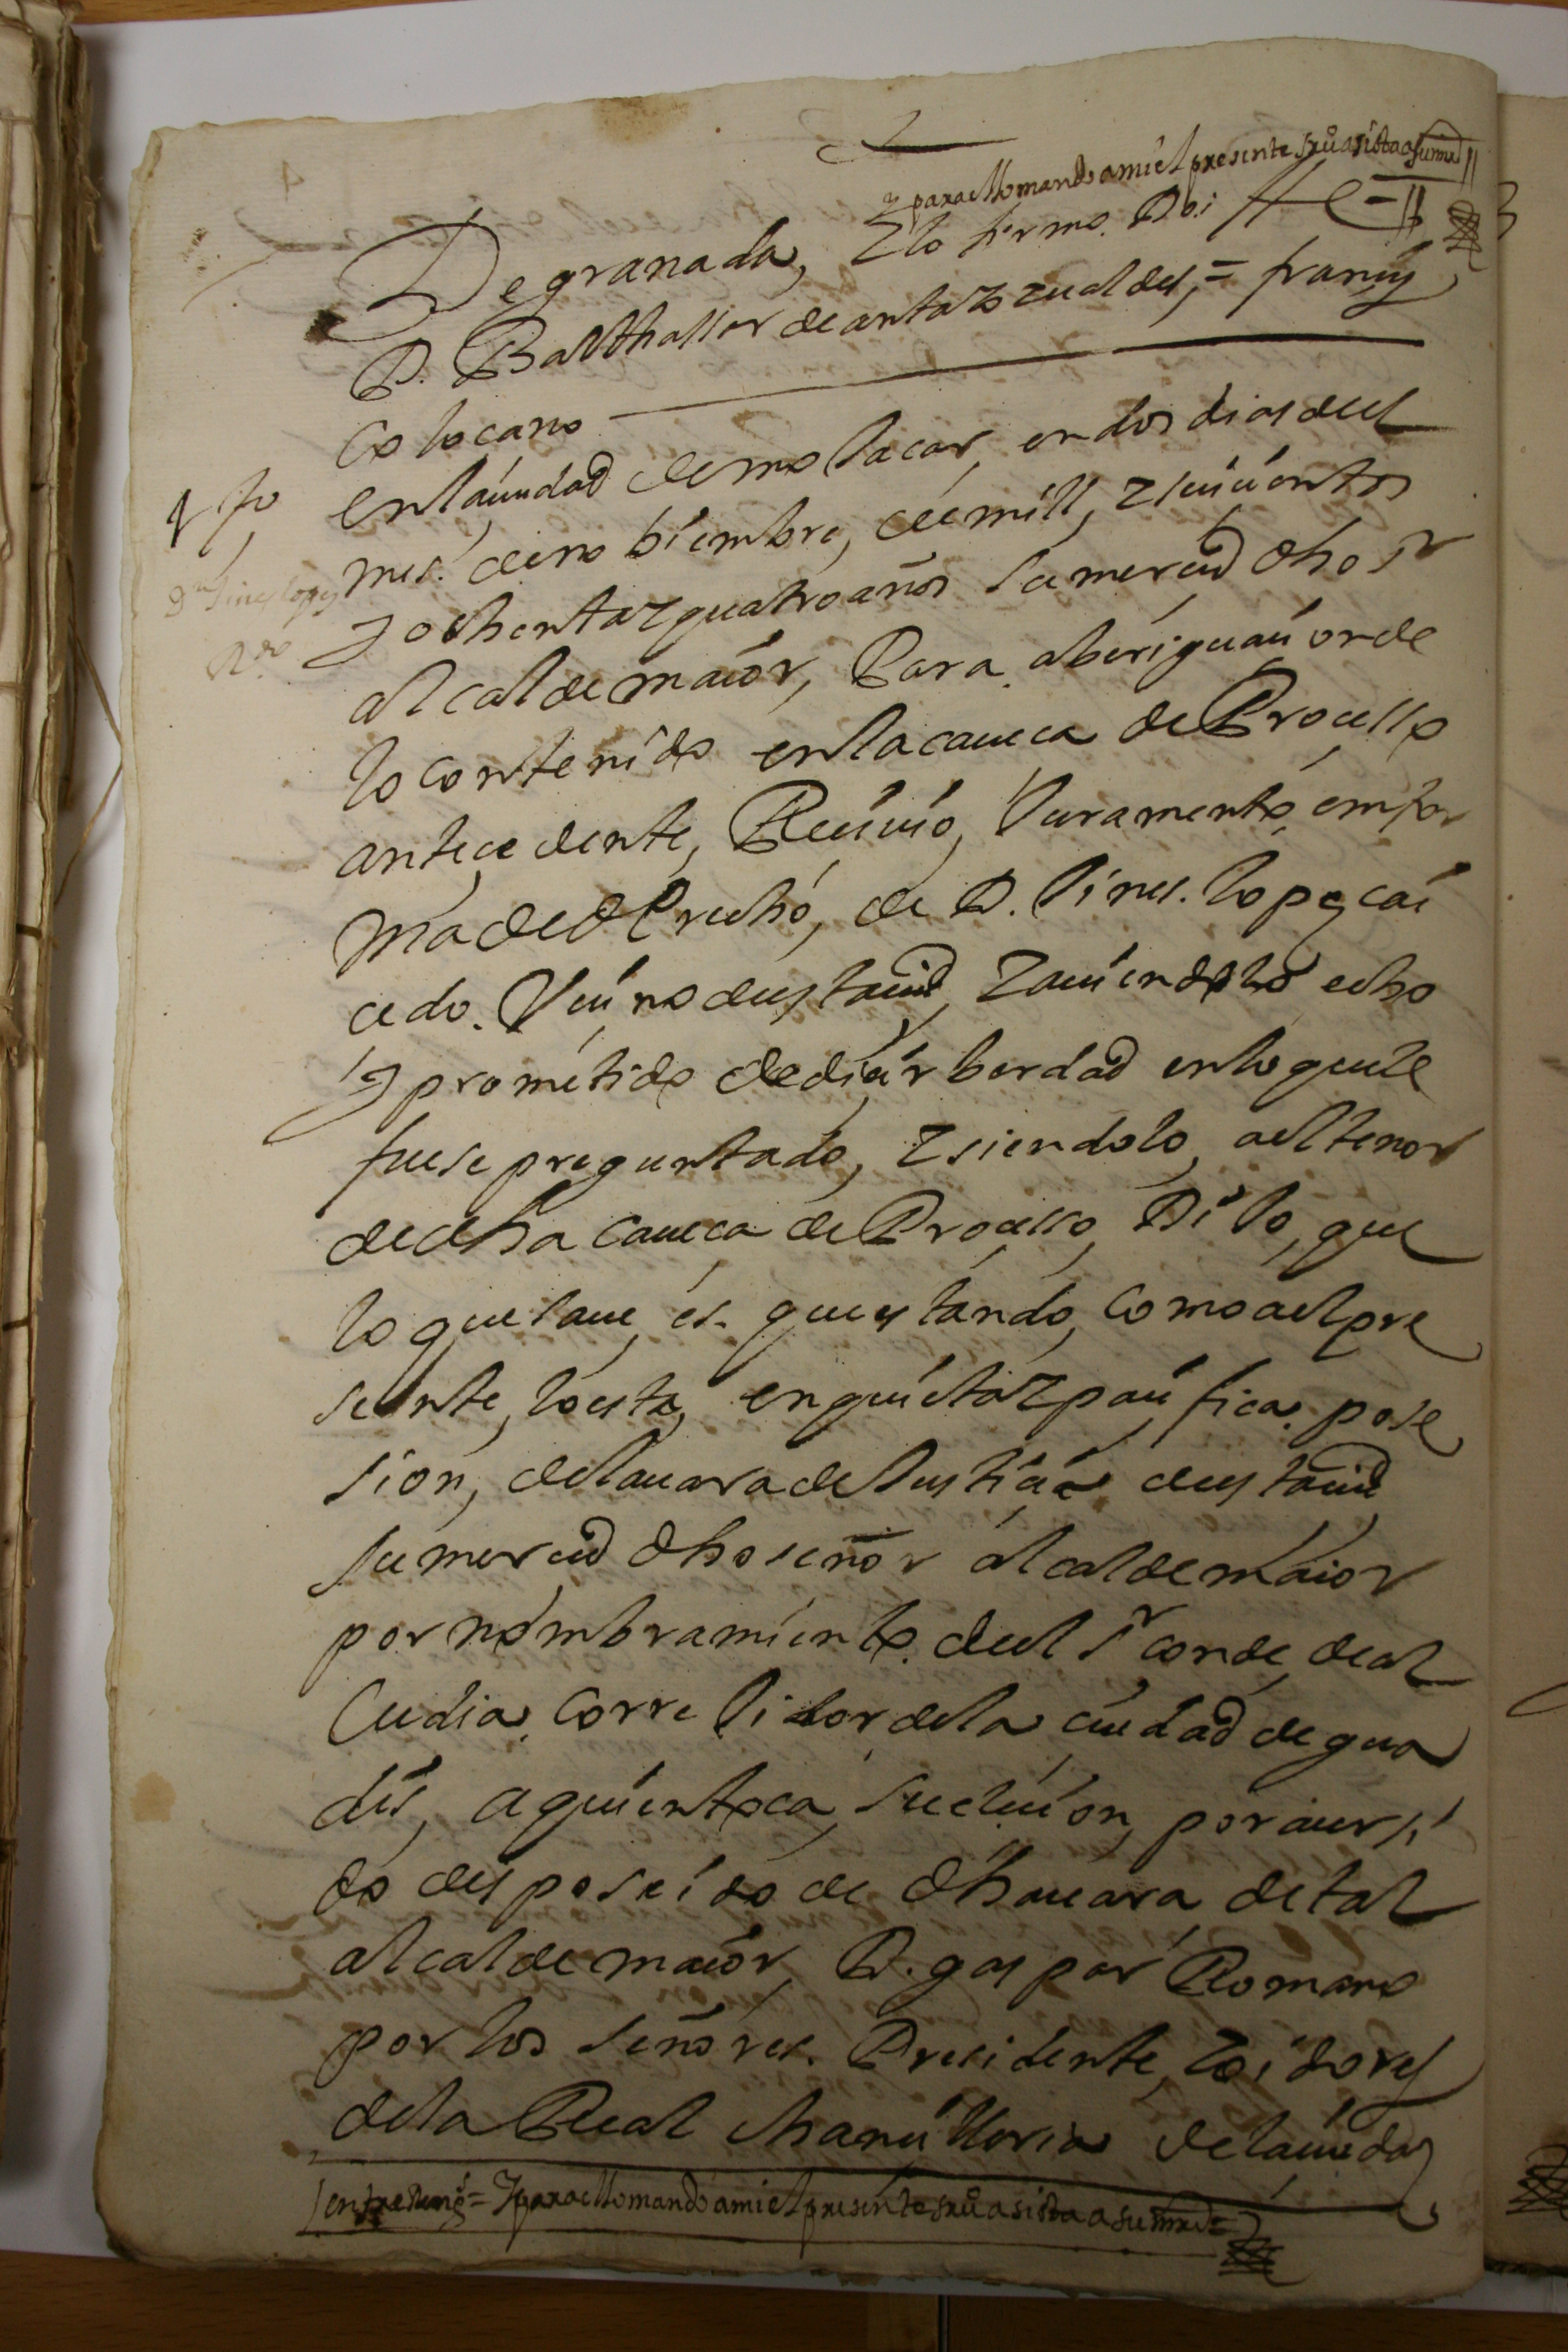 y para ello mando a mi el presente srio asista a su md
De granada, Y lo firmo. Doi fe =
D. Balthassar de anta y zualdes, = francis
co locano
tgo
Dn Gines lopez
Vo
en la ciudad de mo Jacar, en dos dias del
mes. de no biembre, de mill, Y seicientos
Y ochenta Y quatro años su merced dho sr
alcalde maior, Para, aberiguacion de
lo contenido en la caueca de Processo
antecedente, Reciuio, Juramento, en for
ma de derecho, de D. Gines. lopez cai
cedo. Vecino desta ciud, Y auiendolo echo
Y prometido de decir berdad en lo que le
fuese preguntado, Y siendolo, ael tenor
de dha caueca de Processo, Dijo, que
lo que saue, es. que estando, como ael pre
sente, lo esta, en quieta Y pacifica. pose
sion, de la uara de Justicia desta ciud
su merced dho señor alcalde maior
por nombramiento. del sr conde, de al
cudia, Corre Jidor de la ciudad de gua
dis, a quien toca, su elecion, por auer si
do desposeido de dha uara de tal
alcalde maior, D. gaspar Romano
por los señores. Presidente, Y oidores
de la Real chancilleria de la ciudad
entre Reng = Y para ello mando a mi el presente srio asista a su mrd =